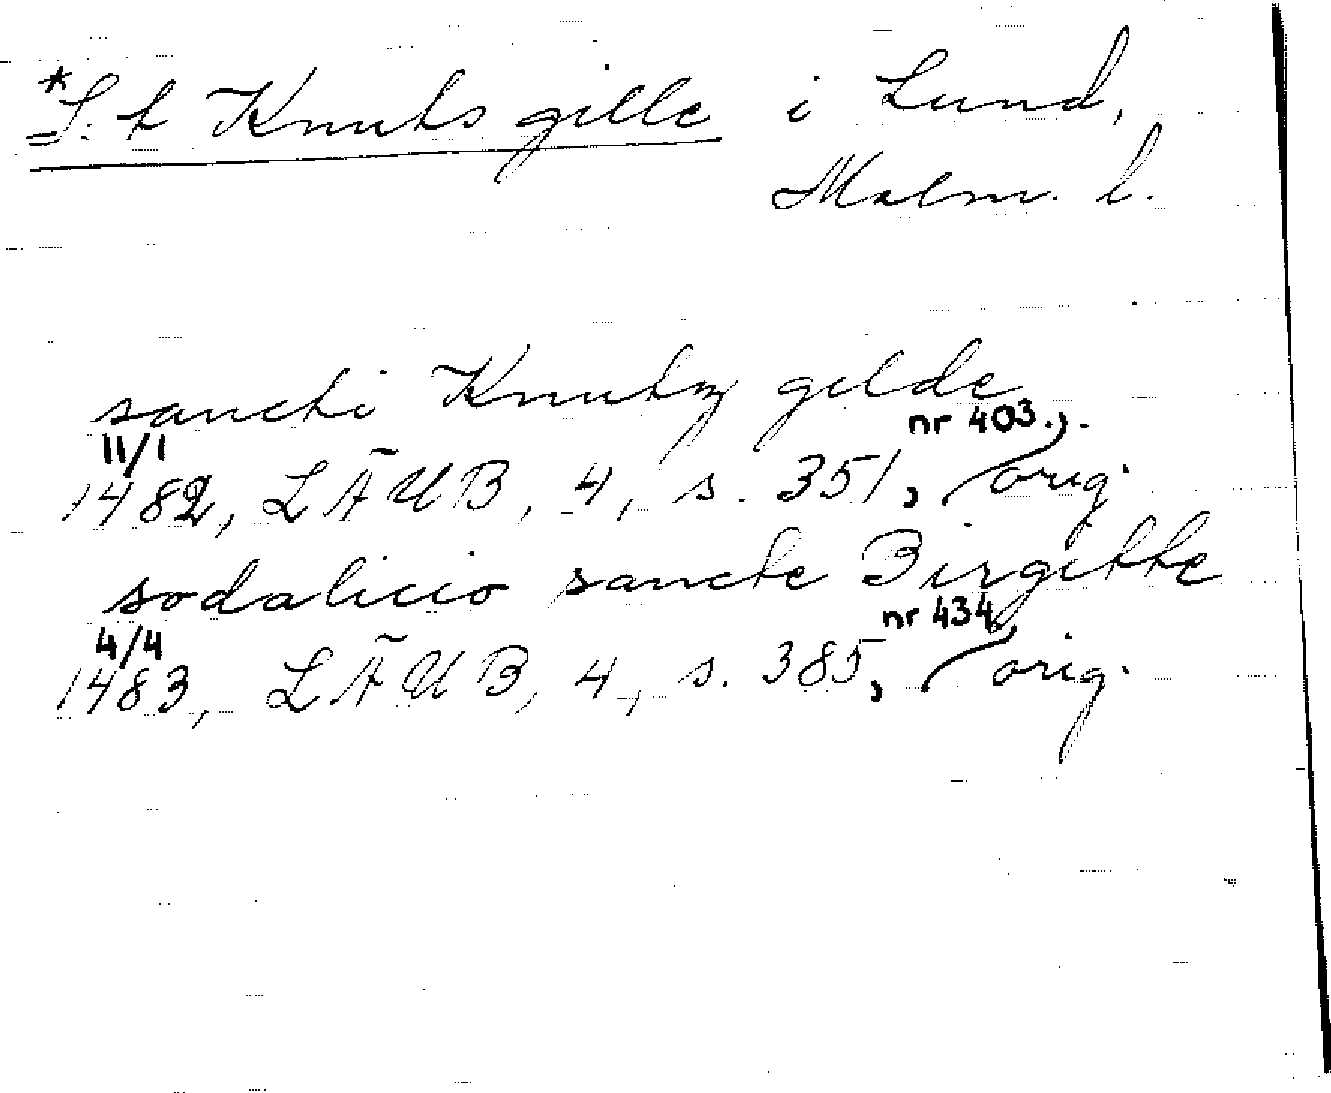 *S:t Knuts gille i Lund,
Malm. l.
sancti Knutz gilde
11/1 nr 403.,.
1482, LÄUB, 4, s. 351, orig.
sodalicio sancte Birgitte
4/4 nr 434,
1483, LÄUB, 4, s. 385, orig.